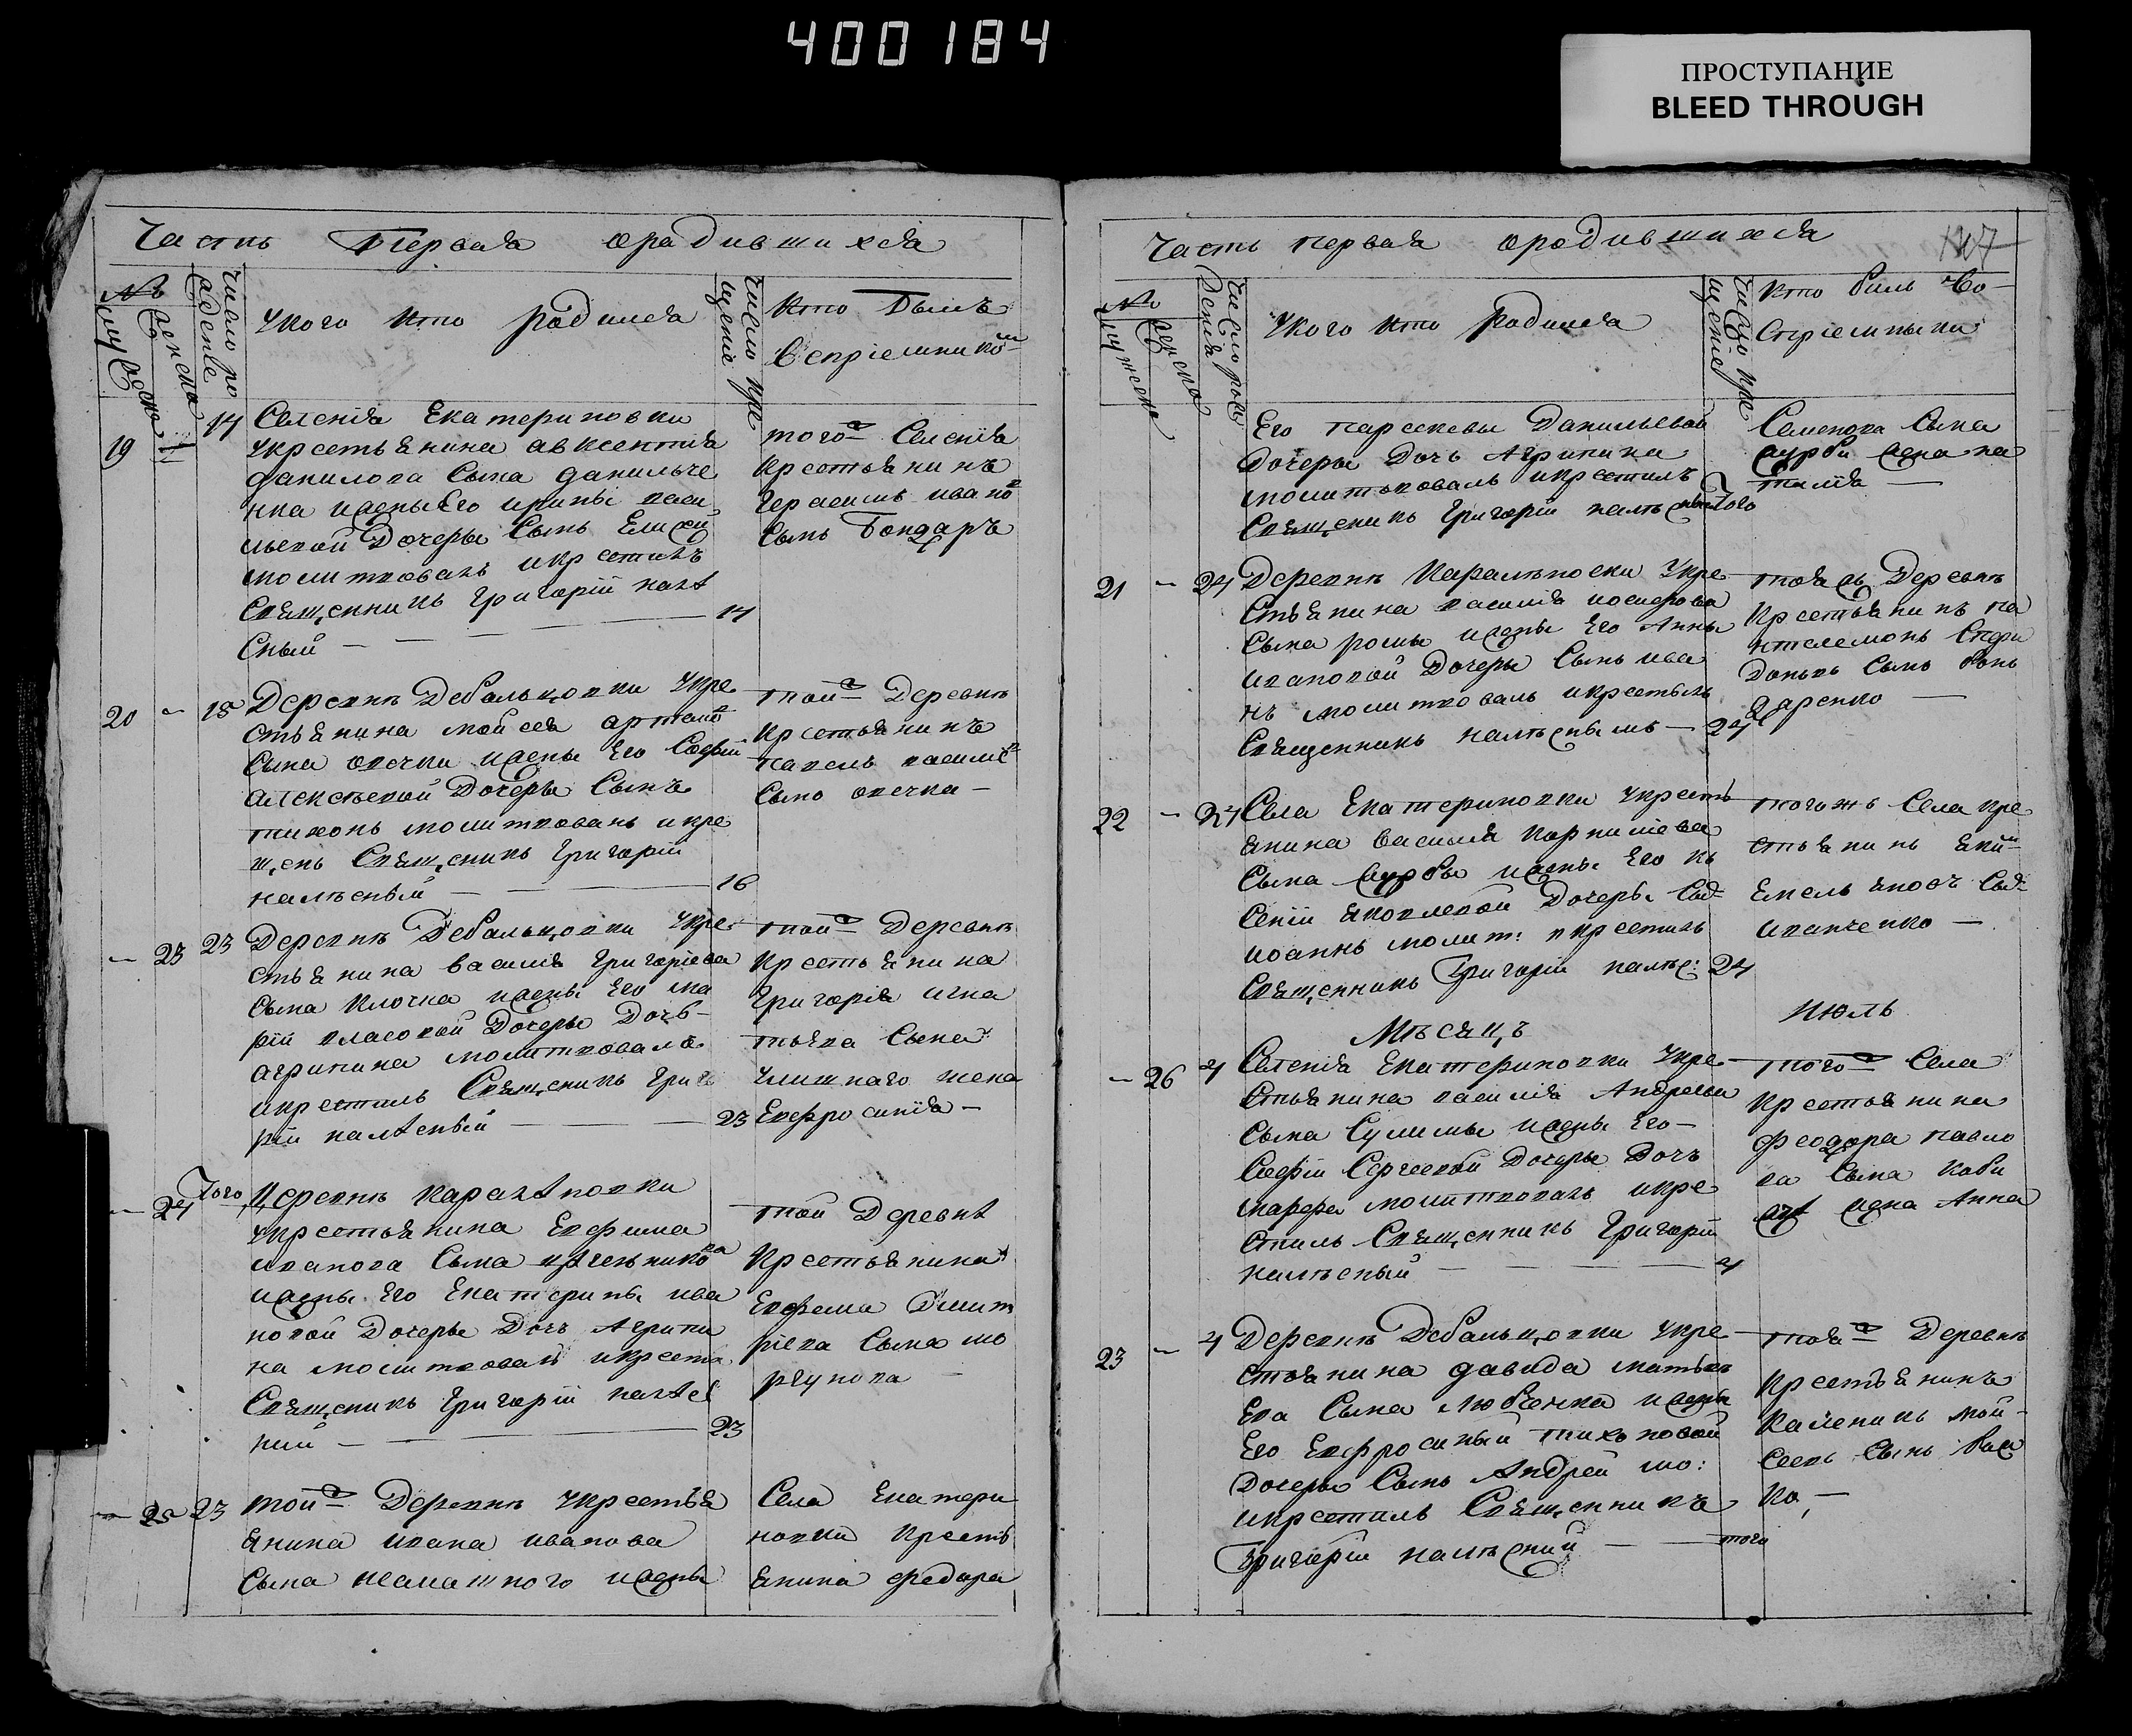 400184
ПРОСТУПАНИЕ
BLEED THROUGH
Часть Первая ородившихся
№
мужеска
женска
Число ро
жденiе
Укого кто родился
Число кре
щенiе
Кто Былъ
Воспрiемникомъ
19
14
Селенiя Екатериновки
укрестьянина авксентия
данилова Сына данильче
нка ижены Его ирины васи
льевой Дочеры Сынъ Елисей
молитвовалъ икрестилъ
Священникъ Григорiй калѣ
сный
14
того ж Селенiя
крестьянинъ
Герасимъ ивано
Сынъ Бондаръ
20 - 15
Деревнѣ Дебальцовки Укре
стьянина мойсея артемо
Сына овечки ижены Его Софiи
алексѣевой Дочеры Сынъ
тихонъ молитвованъ икре
щенъ Священикъ Григорiй
калѣсный
16
той ж Деревнѣ
крестьянинъ
павелъ васили
Сынъ овечка -
- 23 23
Деревнѣ Дебальцовки Укре
стьянина василiя Григорiева
Сына Клочка ижены Его ма
рiи власовой Дочеры Дочь
агрипина молитвовалъ
икрестилъ Священикъ Григо
рiй калѣсный
23
той ж Деревнѣ
Крестьянина
Григорiя игна
тьева Сына
жена
Евфросинiя -
- 24 Того
Деревнѣ каралѣновки
укрестьянина Евфима
иванова Сына
ижены Его Екатерины ива
новой Дочеры Дочь Агрипи
на молитвовалъ икрести
Священикъ Григорiй калѣс
ний
23
той Деревнѣ
Крестьянина
Евфема Дмит
рiева Сына мо
ргунова
- 25 23
той ж Деревнѣ Укрестья
янина ивана иванова
Сына ижены
Села Екатери
новки Кресть
янина федора
Часть первая ородившихся
№
мужеска
женска
Число рож
денiя
Укого кто родился
Число кре
щенiе
Кто билъ Во-
Спрiемники
Его параскевы Данильевой
Дочеры Дочь Агрипина
молитвовалъ икрестилъ
Священикъ Григорiй калѣсный
Того
Семенова Сына
журби жена на
талiя
21 - 24
Деревнѣ Каралѣновки Укре
Стьянина василiя иосифова
Сына ромы ижены Его Анны
ивановой Дочеры Сынъ ива
нъ молитвовалъ икрестилъ
Священникъ калѣснымъ
24
тояжъ Деревнѣ
Крестьянинъ па
нтелемонъ Спири
доновъ Сынъ бон
даренко
22 - 24
Села Екатериновки Укресть
янина Василия Корнилiева
Сына журбы ижены Его кь
сенiи яковлевой Дочеры Сы
иоаннъ молит: икрестилъ
Священникъ Григорiй калѣс:
24
тогожъ Села кре
стьянинъ яким
Емельяновъ Сы
иванченко
Мѣсяцъ Июль
- 26 4
Селенiя Екатериновки Укре
Стьянина василiя Андреева
Сына Сулимы ижены Его -
Софiи Сергеевой Дочеры Дочь
марфа молитвовалъ икре
стилъ Священникъ Григорiй
калѣсный
4
того ж Села
Крестьянина
Феодора павло
ва Сына
жена Анна
23 - 4
Деревнѣ Дебальцовки Укре
стьянина давида матвѣ
Ева Сына Любченка ижены
Его Евфросиньи тихоновой
Дочеры Сынъ Андрей мо:
икрестилъ Священникъ
Григорiй калѣсний
того
тоя ж Деревнѣ
Крестьянинъ
мой-
сеевъ Сынъ
ко